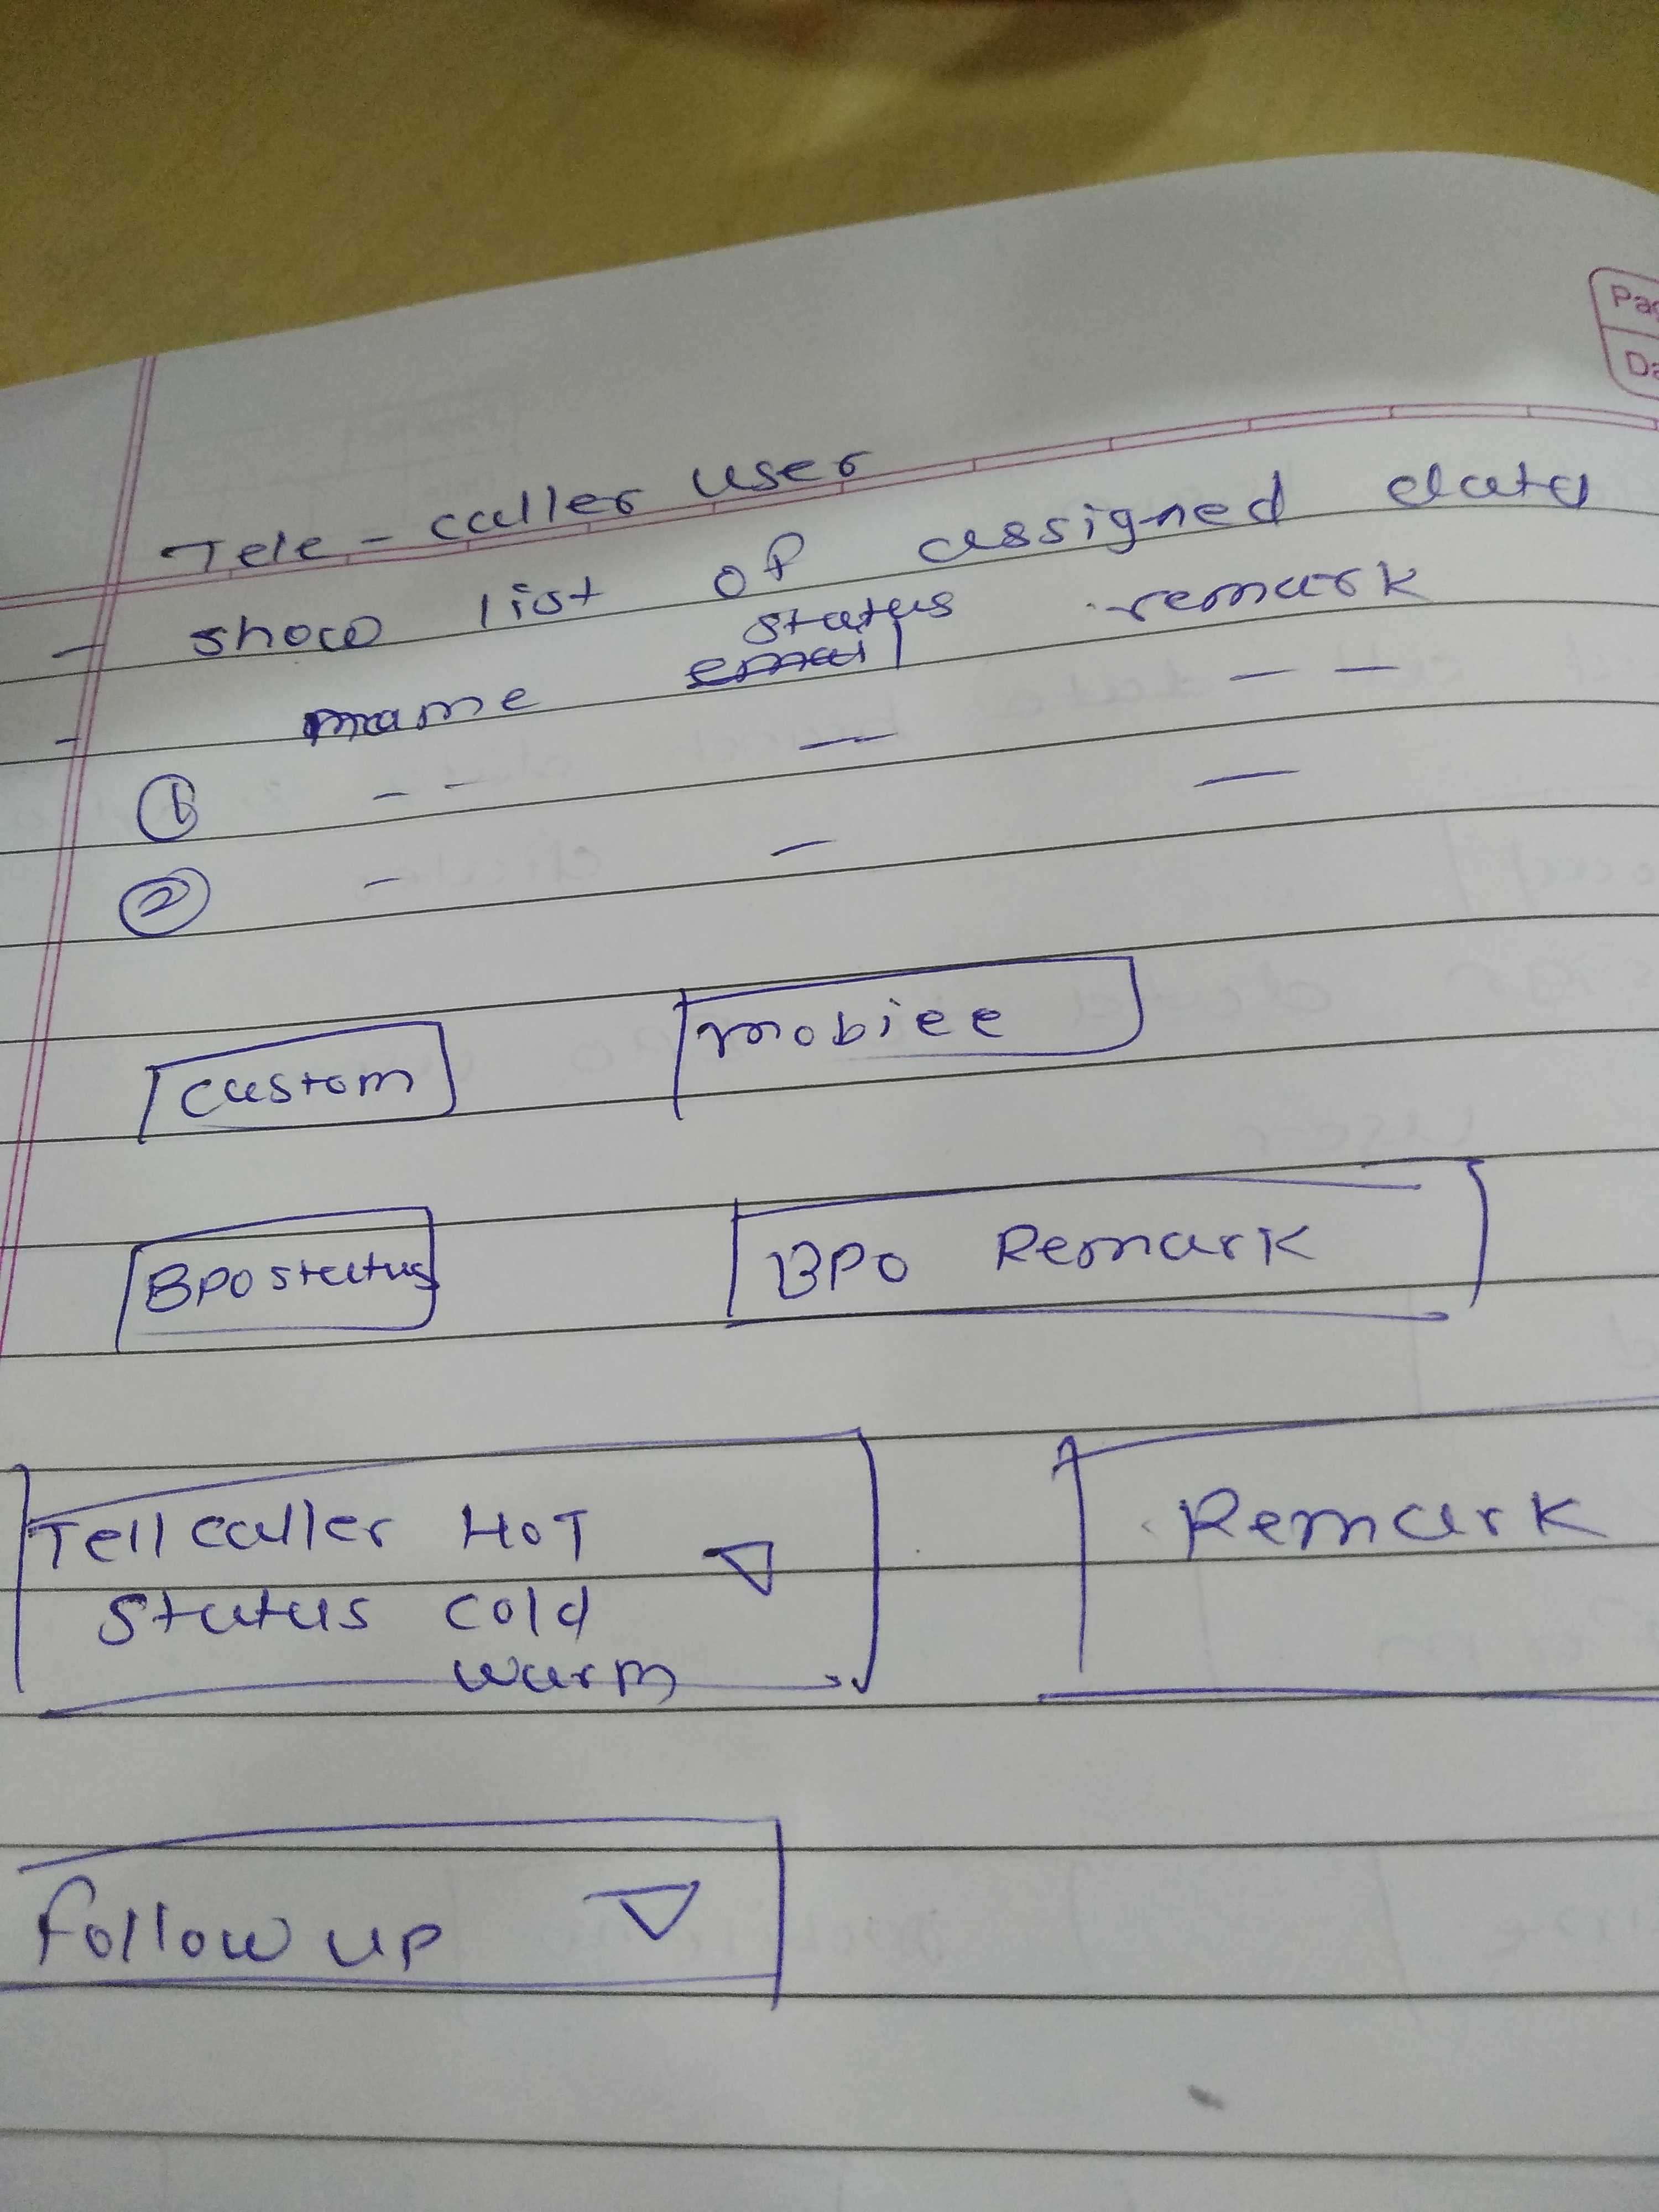 Pag
Da
Tele - caller user
- show list of assigned data
- name status remark
① - - — — —
② - - —
custom mobiee
BPO status BPO Remark
Tell caller HOT Remark
status cold
warm
Follow up